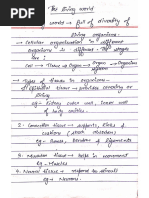 The living world
living world → full of diversity of
living organisms.
→ Cellular organisation in different
organisms is different. The stages
are :
Cell → Tissue → Organ → Organ system → Organism
→ Types of tissues in organisms.
1) Epithelial tissue → provides covering or
lining
eg - Kidney, outer wall, inner wall
of lung cavities.
2. Connective tissue → supports, binds &
cushions (shock absorbers)
eg - Bones, tendons & ligaments
3. Muscular tissue → helps in movement
eg - Muscles
4. Nervous tissue → respond to stimuli
eg - Neurons.